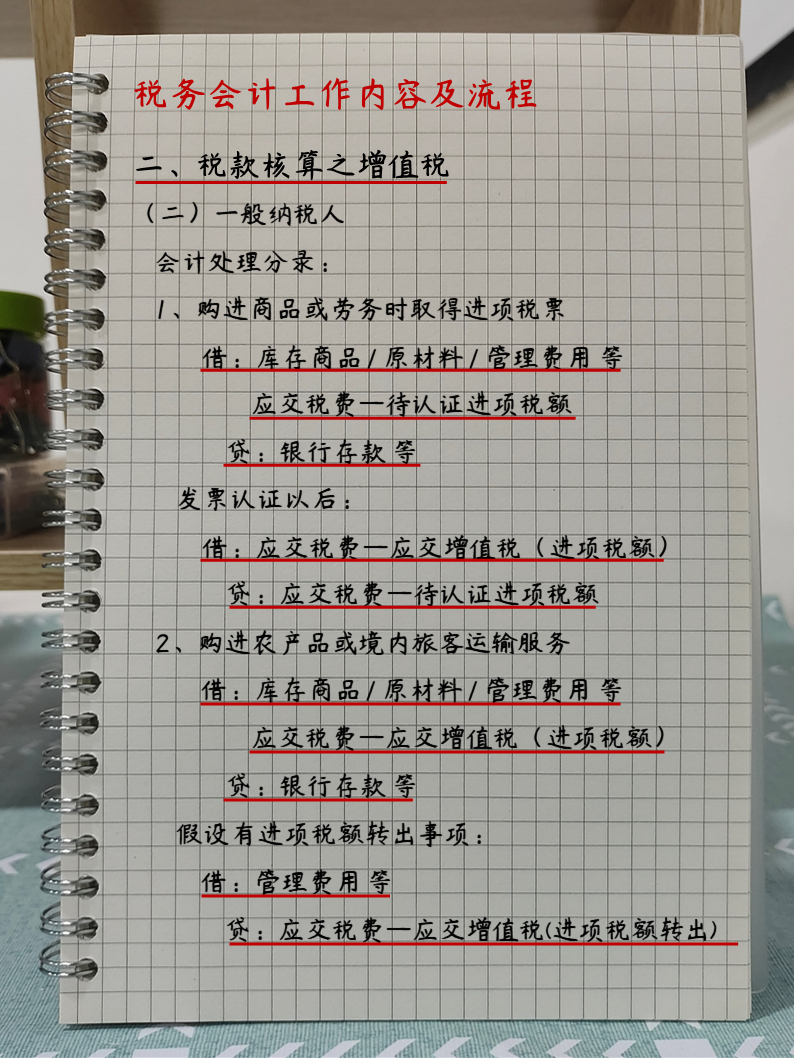 税务会计工作内容及流程
二、税款核算之增值税
（二）一般纳税人
会计处理分录：
1、购进商品或劳务时取得进项税票
借：库存商品/原材料/管理费用 等
应交税费—待认证进项税额
贷：银行存款 等
发票认证以后：
借：应交税费—应交增值税（进项税额）
贷：应交税费—待认证进项税额
2、购进农产品或境内旅客运输服务
借：库存商品/原材料/管理费用 等
应交税费—应交增值税（进项税额）
贷：银行存款 等
假设有进项税额转出事项：
借：管理费用 等
贷：应交税费—应交增值税(进项税额转出)